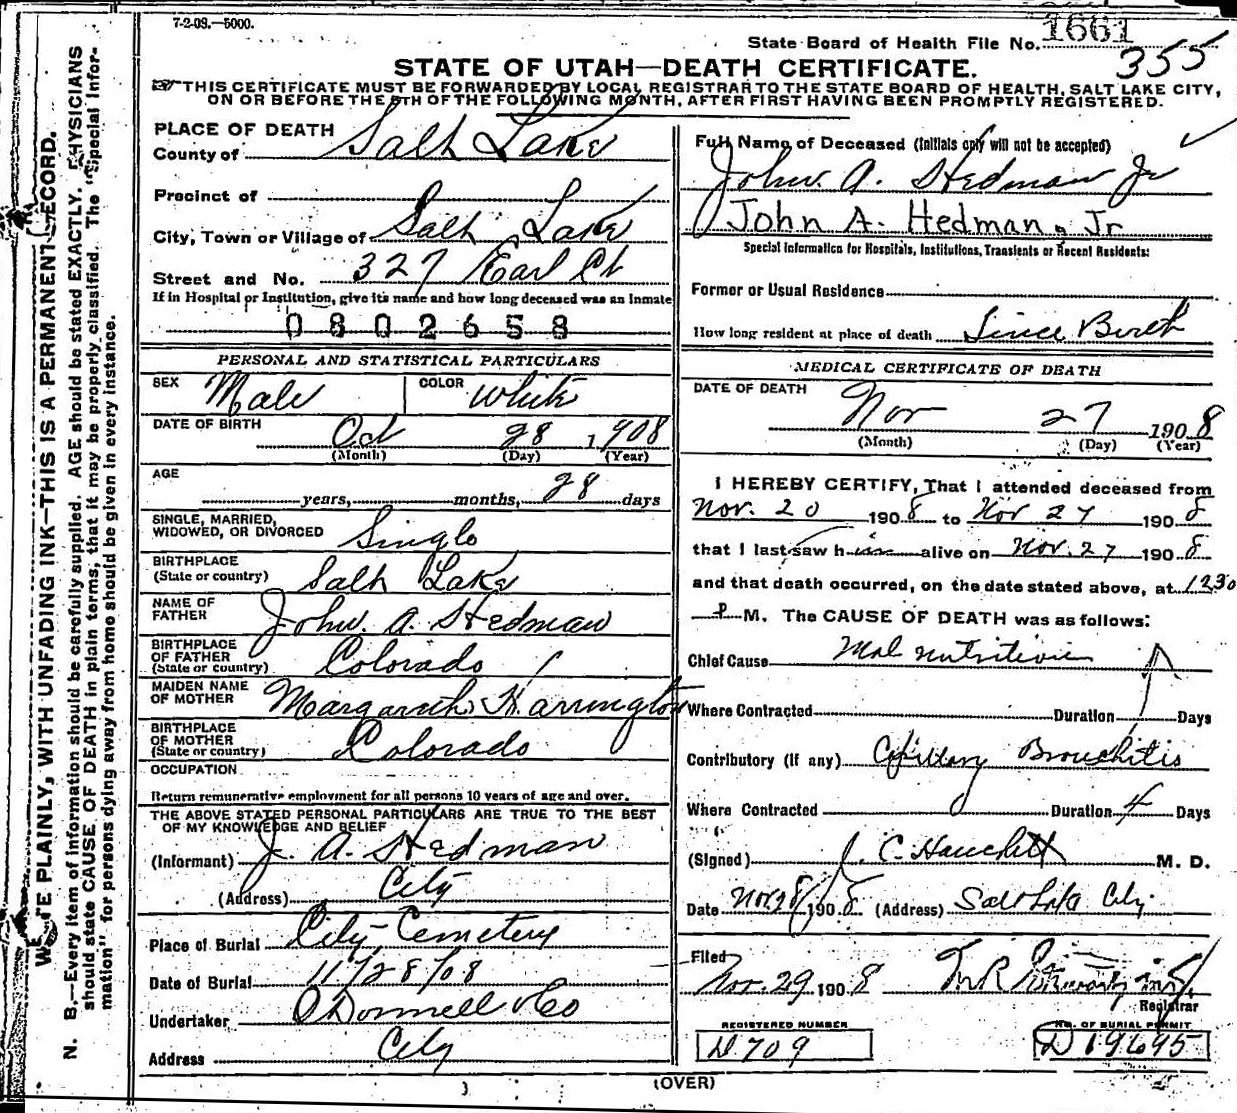 7-2-09.—5000.
1661
State Board of Health File No.
355
STATE OF UTAH—DEATH CERTIFICATE.
THIS CERTIFICATE MUST BE FORWARDED BY LOCAL REGISTRAR TO THE STATE BOARD OF HEALTH, SALT LAKE CITY,
ON OR BEFORE THE 5TH OF THE FOLLOWING MONTH, AFTER FIRST HAVING BEEN PROMPTLY REGISTERED.
PLACE OF DEATH
County of Salt Lake
Precinct of
City, Town or Village of Salt Lake
Street and No. 327 Earl Ct
If in Hospital or Institution, give its name and how long deceased was an Inmate
0802658
PERSONAL AND STATISTICAL PARTICULARS
SEX Male COLOR White
DATE OF BIRTH Oct 28 1908
(Month) (Day) (Year)
AGE
years, months, 28 days
SINGLE, MARRIED,
WIDOWED, OR DIVORCED Single
BIRTHPLACE
(State or country) Salt Lake
NAME OF
FATHER John A. Hedman
BIRTHPLACE
OF FATHER
(State or country) Colorado
MAIDEN NAME
OF MOTHER Margareth Harrington
BIRTHPLACE
OF MOTHER
(State or country) Colorado
OCCUPATION
Return remunerative employment for all persons 10 years of age and over.
THE ABOVE STATED PERSONAL PARTICULARS ARE TRUE TO THE BEST
OF MY KNOWLEDGE AND BELIEF
(Informant) J. A. Hedman
(Address) City
Place of Burial City Cemetery
Date of Burial 11/28/08
Undertaker O'Donnell & Co
Address City
Full Name of Deceased (Initials only will not be accepted)
John A. Hedman Jr
John A. Hedman, Jr
Special Information for Hospitals, Institutions, Transients or Recent Residents:
Former or Usual Residence
How long resident at place of death Since Birth
MEDICAL CERTIFICATE OF DEATH
DATE OF DEATH
Nov 27 1908
(Month) (Day) (Year)
I HEREBY CERTIFY, That I attended deceased from
Nov. 20 1908 to Nov 27 1908
that I last saw him alive on Nov. 27 1908
and that death occurred, on the date stated above, at 1230
P M. The CAUSE OF DEATH was as follows:
Chief Cause Mal nutrition
Where Contracted Duration Days
Contributory (if any) Capillary Bronchitis
Where Contracted Duration 4 Days
(Signed) J. C. M. D.
Date Nov 28/1908 (Address) Salt Lake City
Filed
Nov. 29 1908
Registrar
REGISTERED NUMBER
D 709
NO. OF BURIAL PERMIT
D 19695
(OVER)
WRITE PLAINLY, WITH UNFADING INK—THIS IS A PERMANENT RECORD.
N. B.—Every item of information should be carefully supplied. AGE should be stated EXACTLY. PHYSICIANS
should state CAUSE OF DEATH in plain terms, that it may be properly classified. The "Special Infor-
mation" for persons dying away from home should be given in every instance.